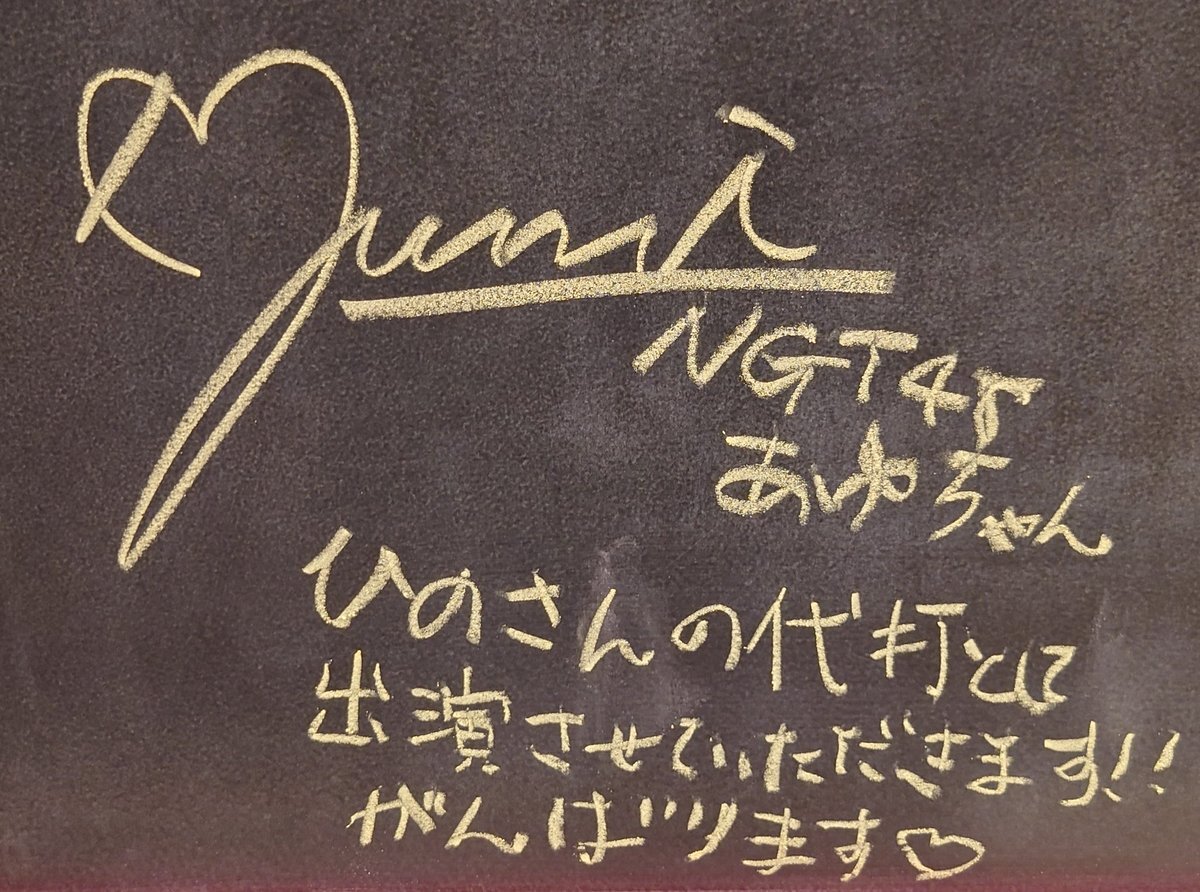 ♡yumi
NGT48
あゆちゃん
ひのさんの代打として
出演させていただきます!!
がんばります♡